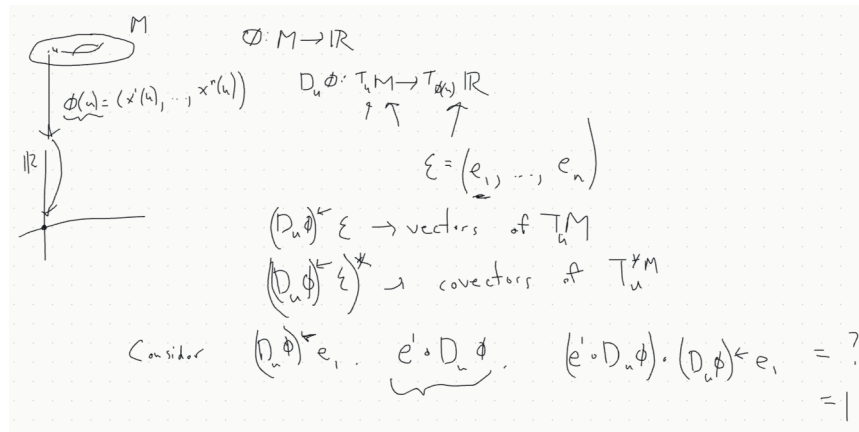 M
u
∅: M → ℝ
D_u ∅: T_u M → T_∅(u) ℝ
ϕ(u) = (x¹(u), .., xⁿ(u))
ℝ
ξ = (e₁, ..., eₙ)
(D_u ϕ)^← ξ → vectors of T_u M
((D_u ϕ)^← ξ)^* → covectors of T_u^* M
Consider (D_u ϕ)^← e₁. e¹∘D_u ϕ. (e¹∘D_u ϕ)∘(D_u ϕ)^← e₁ = ?
= 1